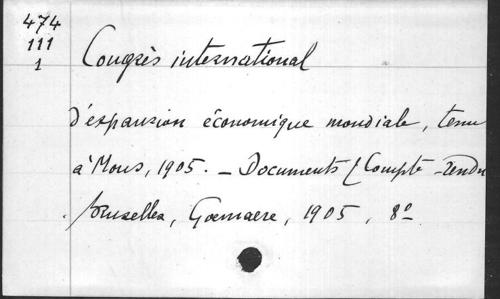 474
111
1
Congrès international
d'expansion économique mondiale, tenu
à Mons, 1905. — Documents ( Compte-rendu
Bruxelles, Goemaere, 1905, 8º